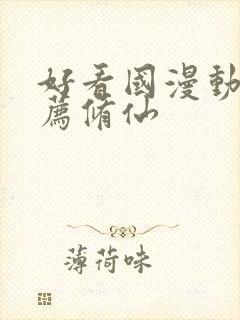 好看國漫動
薦脩仙
薄荷味